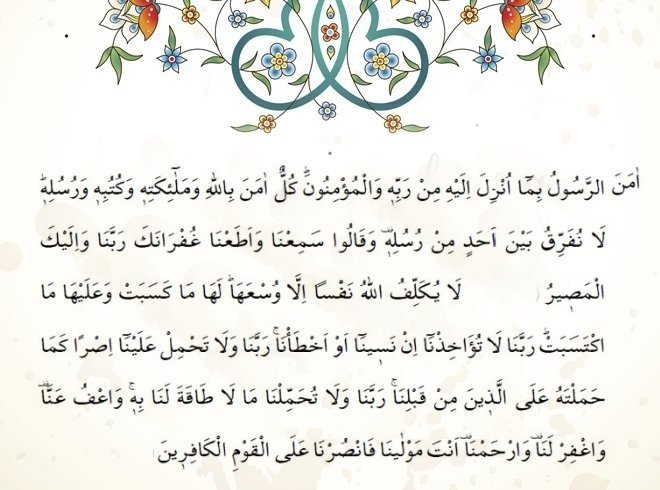 اٰمَنَ الرَّسُولُ بِمَٓا اُنْزِلَ اِلَيْهِ مِنْ رَبِّهٖ وَالْمُؤْمِنُونَۜ كُلٌّ اٰمَنَ بِاللّٰهِ وَمَلٰٓئِكَتِهٖ وَكُتُبِهٖ وَرُسُلِهٖۜ
لَا نُفَرِّقُ بَيْنَ اَحَدٍ مِنْ رُسُلِهٖ۠ وَقَالُوا سَمِعْنَا وَاَطَعْنَا غُفْرَانَكَ رَبَّنَا وَاِلَيْكَ
الْمَصٖيرُ لَا يُكَلِّفُ اللّٰهُ نَفْسًا اِلَّا وُسْعَهَاۜ لَهَا مَا كَسَبَتْ وَعَلَيْهَا مَا
اكْتَسَبَتْۜ رَبَّنَا لَا تُؤَاخِذْنَٓا اِنْ نَسٖينَٓا اَوْ اَخْطَأْنَاۚ رَبَّنَا وَلَا تَحْمِلْ عَلَيْنَٓا اِصْرًا كَمَا
حَمَلْتَهُ عَلَى الَّذٖينَ مِنْ قَبْلِنَاۚ رَبَّنَا وَلَا تُحَمِّلْنَا مَا لَا طَاقَةَ لَنَا بِهٖۚ وَاعْفُ عَنَّا۠
وَاغْفِرْ لَنَا۠ وَارْحَمْنَا۠ اَنْتَ مَوْلٰينَا فَانْصُرْنَا عَلَى الْقَوْمِ الْكَافِرٖينَ